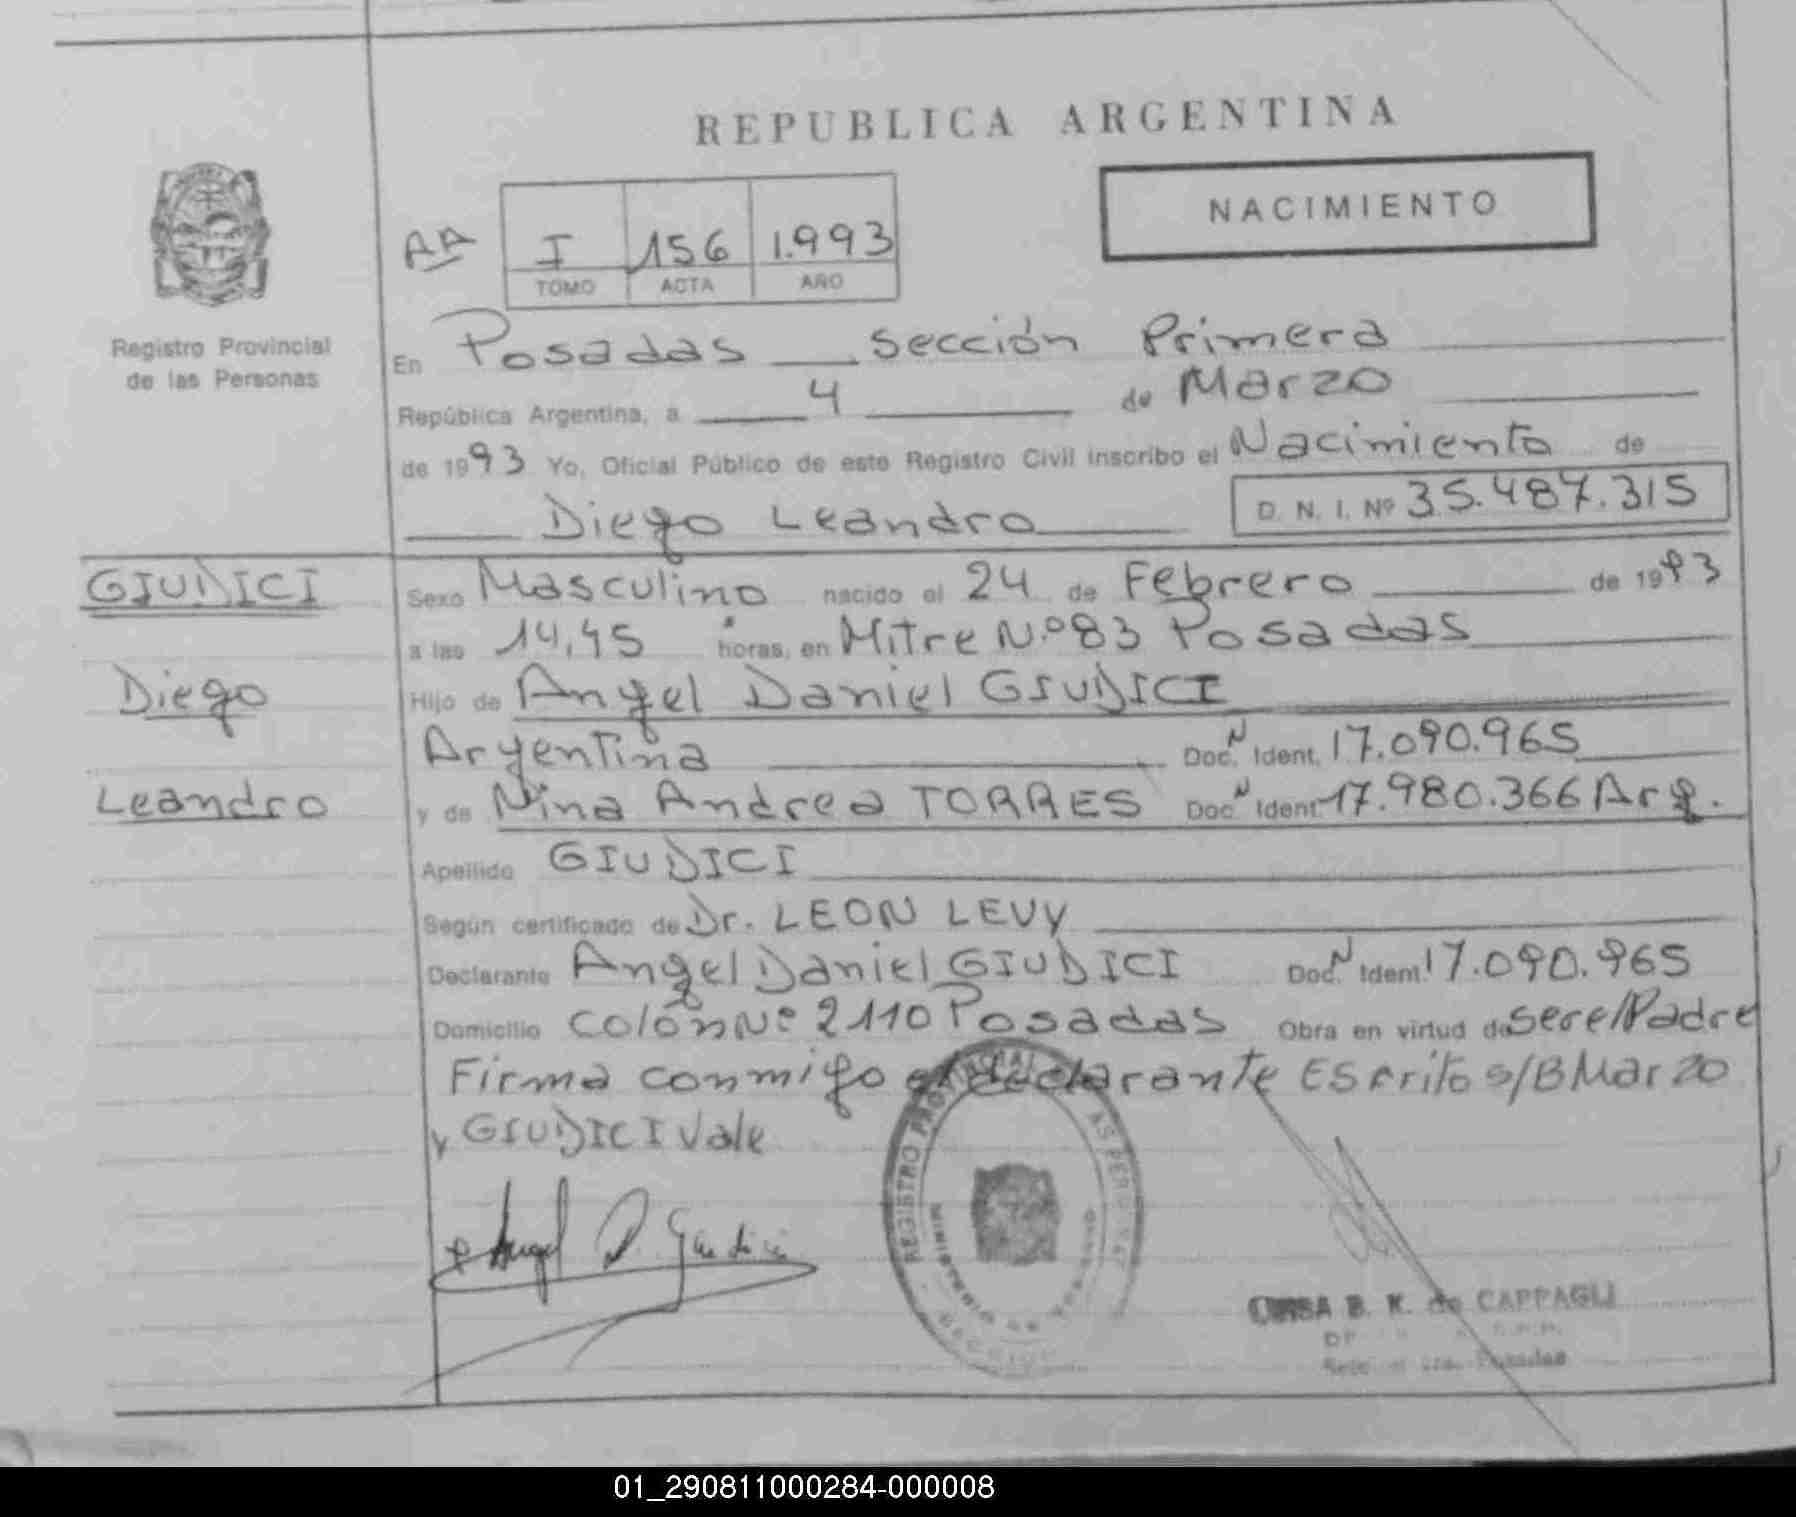 REPUBLICA ARGENTINA
NACIMIENTO
AA I 156 1.993
TOMO ACTA AÑO
Registro Provincial
de las Personas
En Posadas sección Primera
República Argentina, a 4 de Marzo
de 1993 Yo, Oficial Público de este Registro Civil inscribo el Nacimiento de
Diego Leandro D. N. I. Nº 35.487.315
GIUDICI
Diego
Leandro
Sexo Masculino nacido el 24 de Febrero de 1993
a las 14,45 horas, en Mitre N.º 83 Posadas
Hijo de Angel Daniel GIUDICI
Argentina Doc. N Ident. 17.090.965
y de Nina Andrea TORRES Doc. N Ident. 17.980.366 Arg.
Apellido GIUDICI
Según certificado de Dr. LEON LEVY
Declarante Angel Daniel GIUDICI Doc. N Ident. 17.090.965
Domicilio Colón Nº 2110 Posadas Obra en virtud de ser el Padre
Firma conmigo el declarante Escrito s/B Marzo
y GIUDICI Vale
Angel D. Giudici
REGISTRO
MINISTERIO DE
B. K. de CAPPAGLI
Posadas
01_290811000284-000008